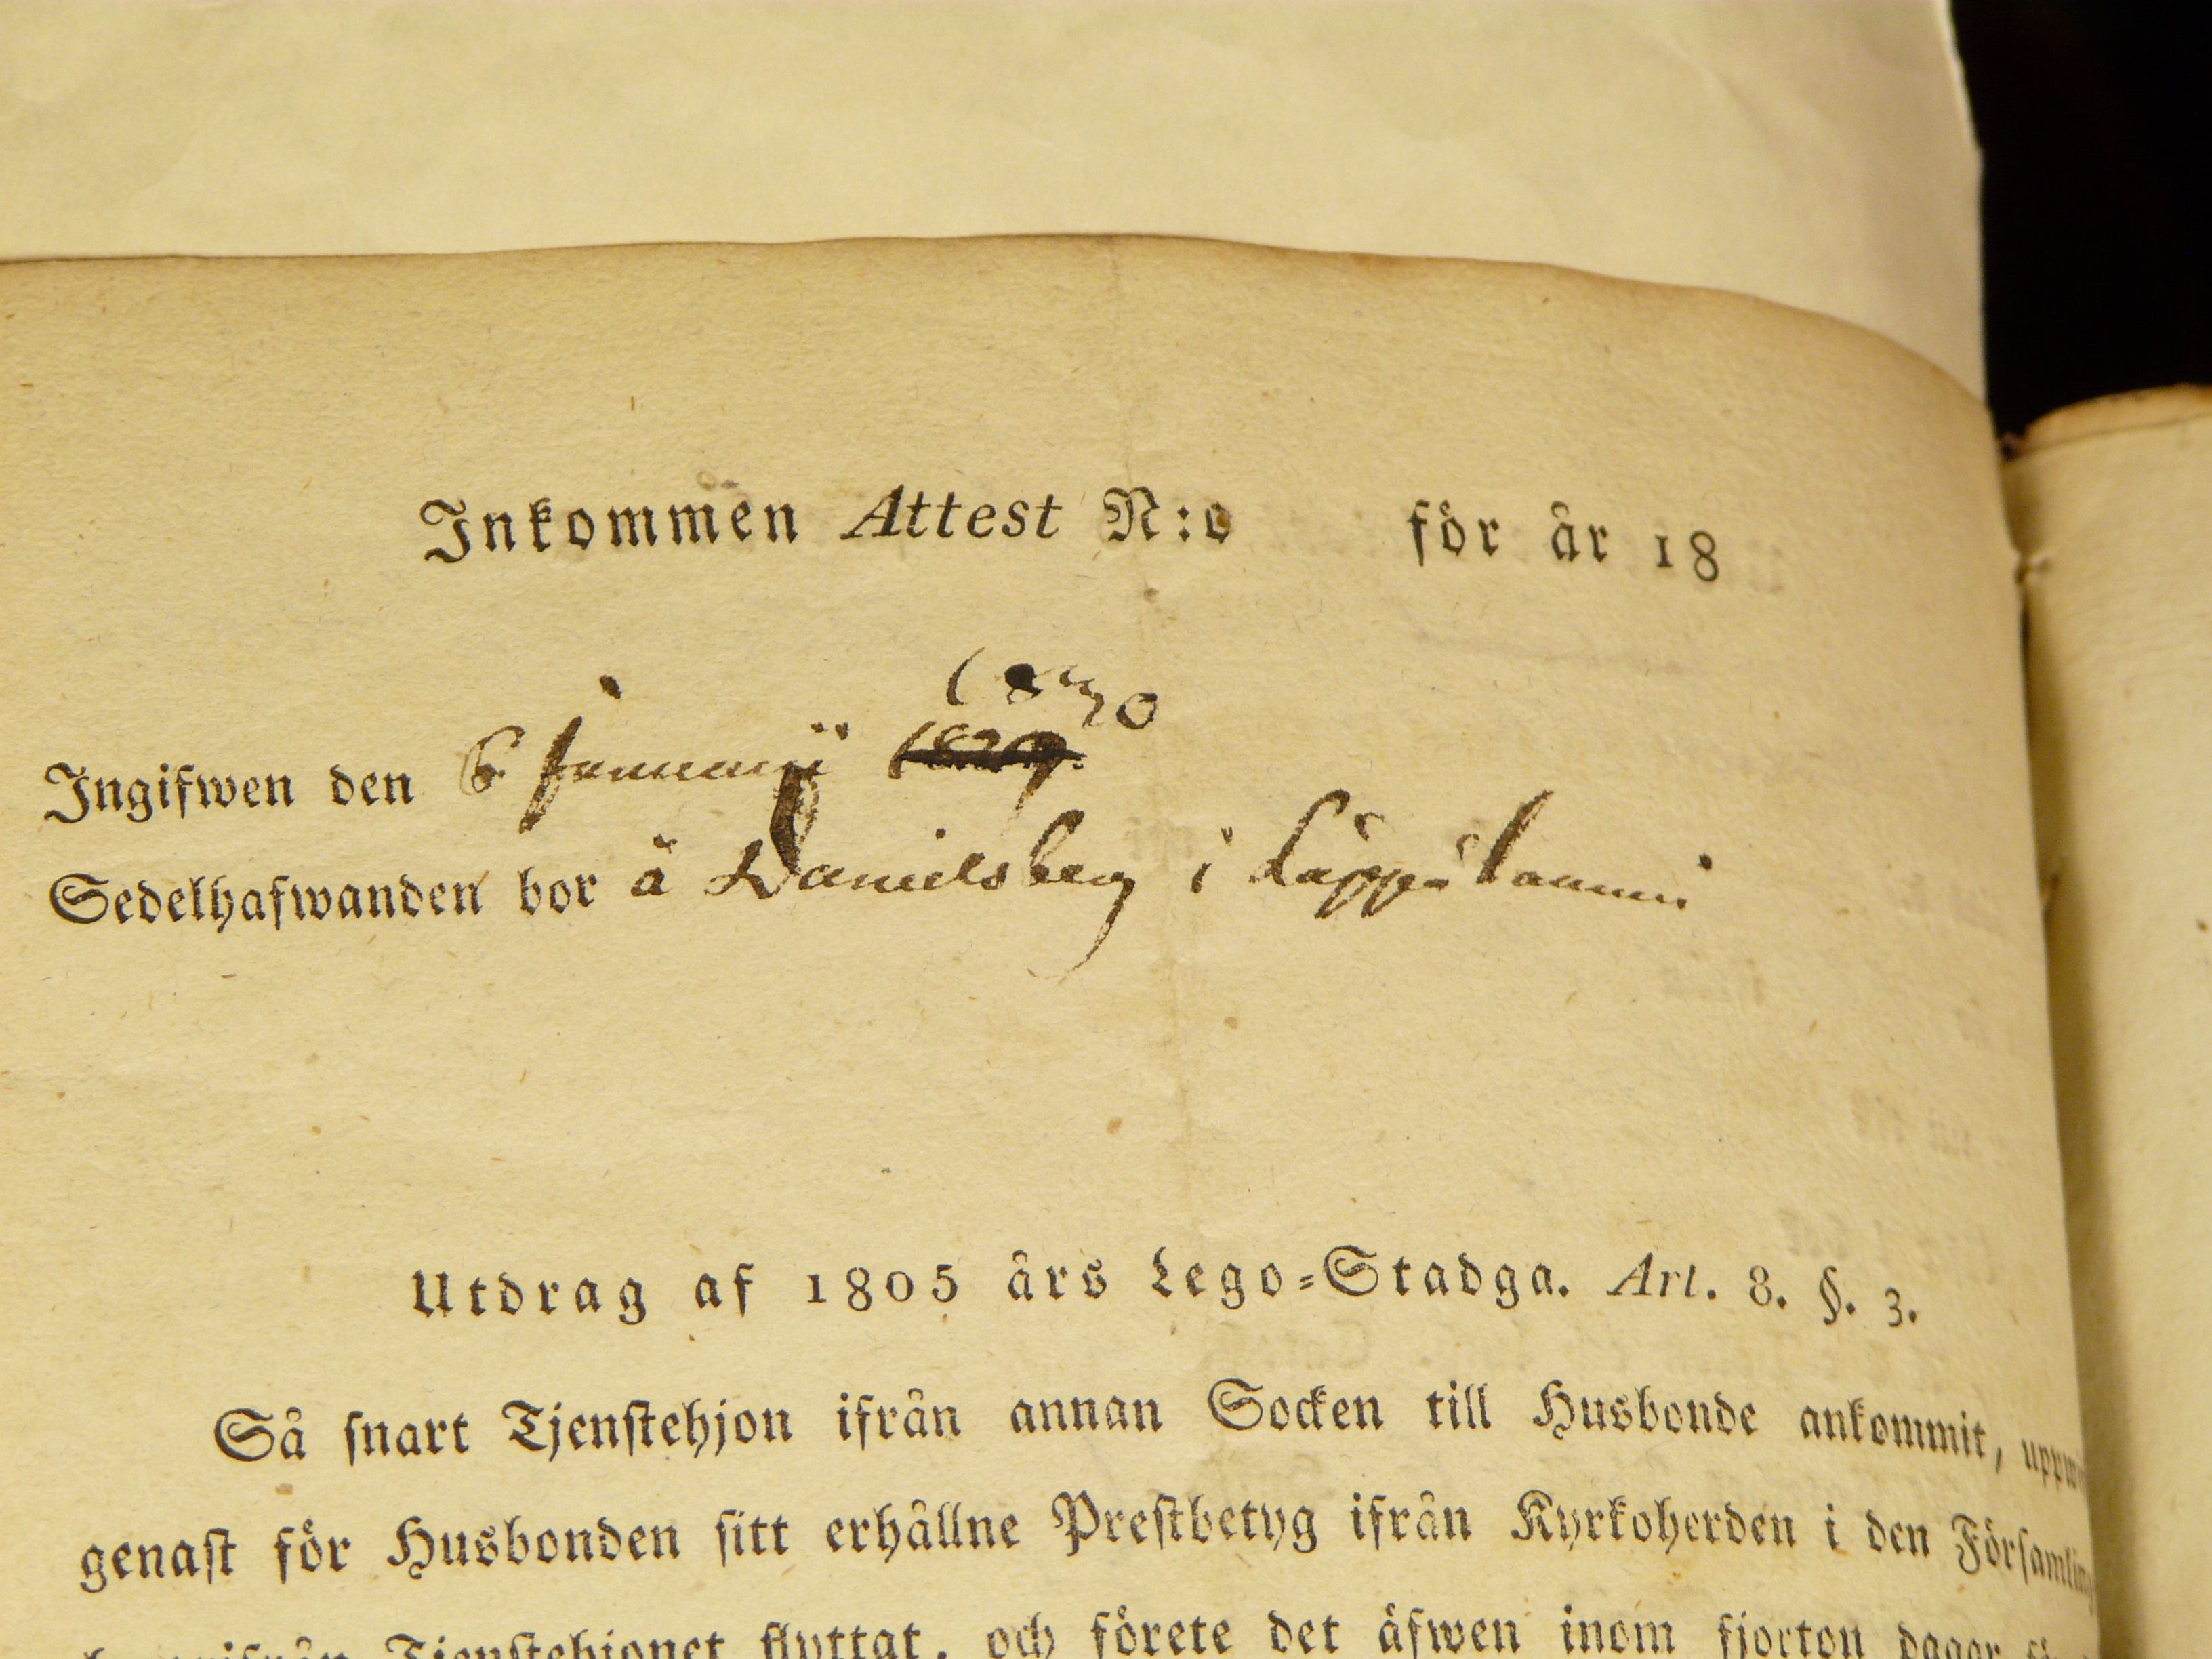 Inkommen Attest N:o för år 18
1830
Ingifwen den 6 Januarii 1829.
Sedelhafwanden bor å Danielsberg i
Utdrag af 1805 års Lego-Stadga. Art. 8. §. 3.
Så snart Tjenstehjon ifrån annan Socken till Husbonde ankommit,
genast för Husbonden sitt erhållne Prestbetyg ifrån Kyrkoherden i den Församling
Tjenstehjonet flyttat, och förete det äfwen inom fjorton dagar